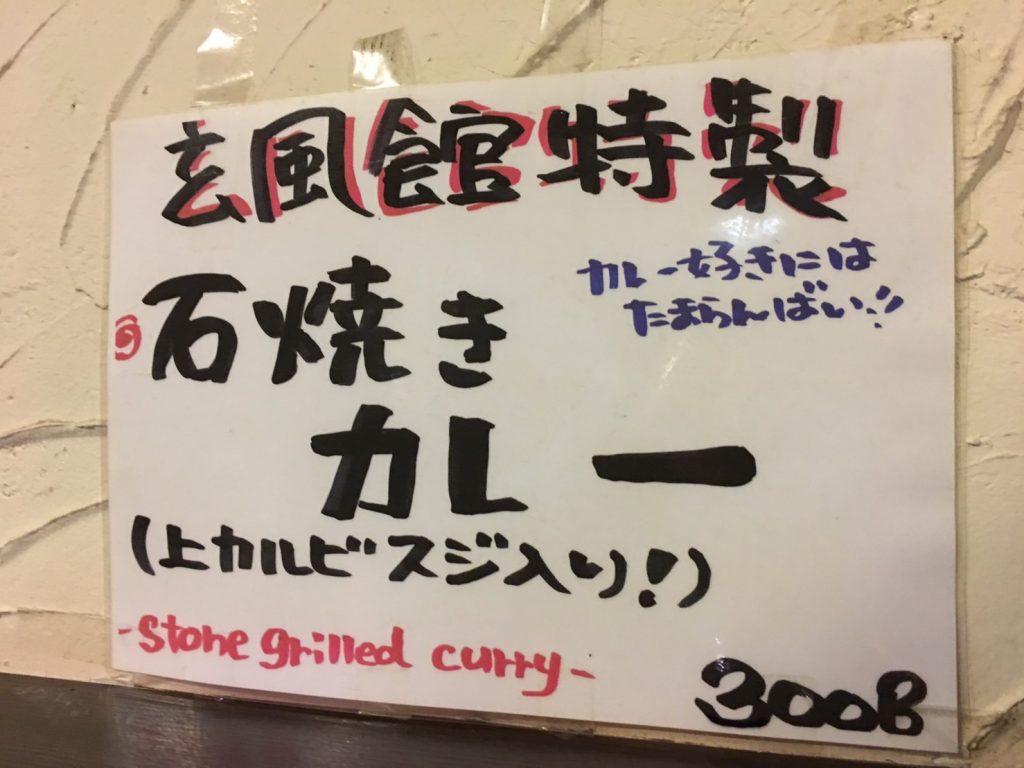 玄風館特製
カレー好きには
たまらんばい!!
石焼き
カレー
(上カルビスジ入り!)
-Stone grilled curry-
300B